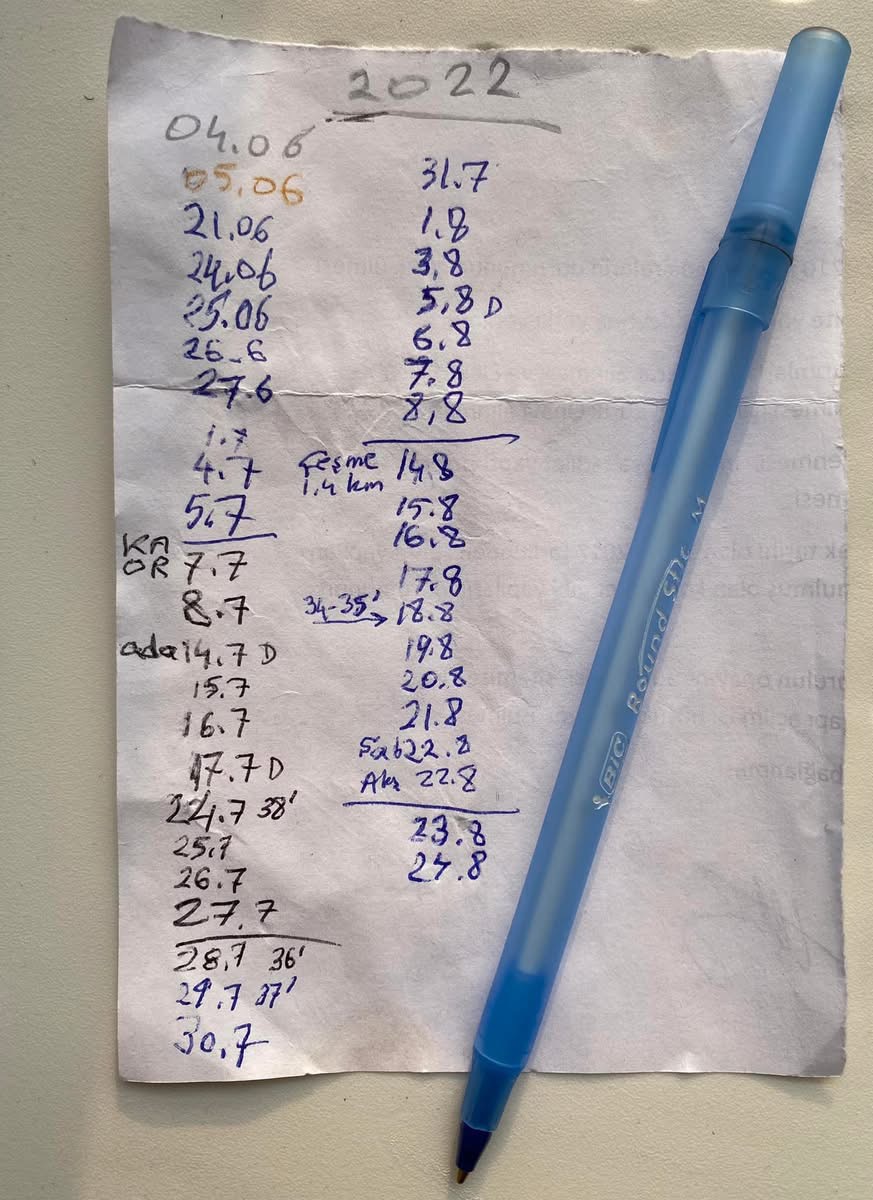 2022
04.06
05.06
21.06
24.06
25.06
26-6
27.6
1.7
4.7
5.7
KA
OR 7.7
8.7
ada 14.7 D
15.7
16.7
17.7 D
24.7 38'
25.7
26.7
27.7
28.7 36'
29.7 37'
30.7
31.7
1.8
3.8
5.8 D
6.8
7.8
8.8
Çeşme 14.8
1.4 km
15.8
16.8
17.8
34-35' → 18.8
19.8
20.8
21.8
Sab 22.8
Akş 22.8
23.8
24.8
BIC Round Stic M